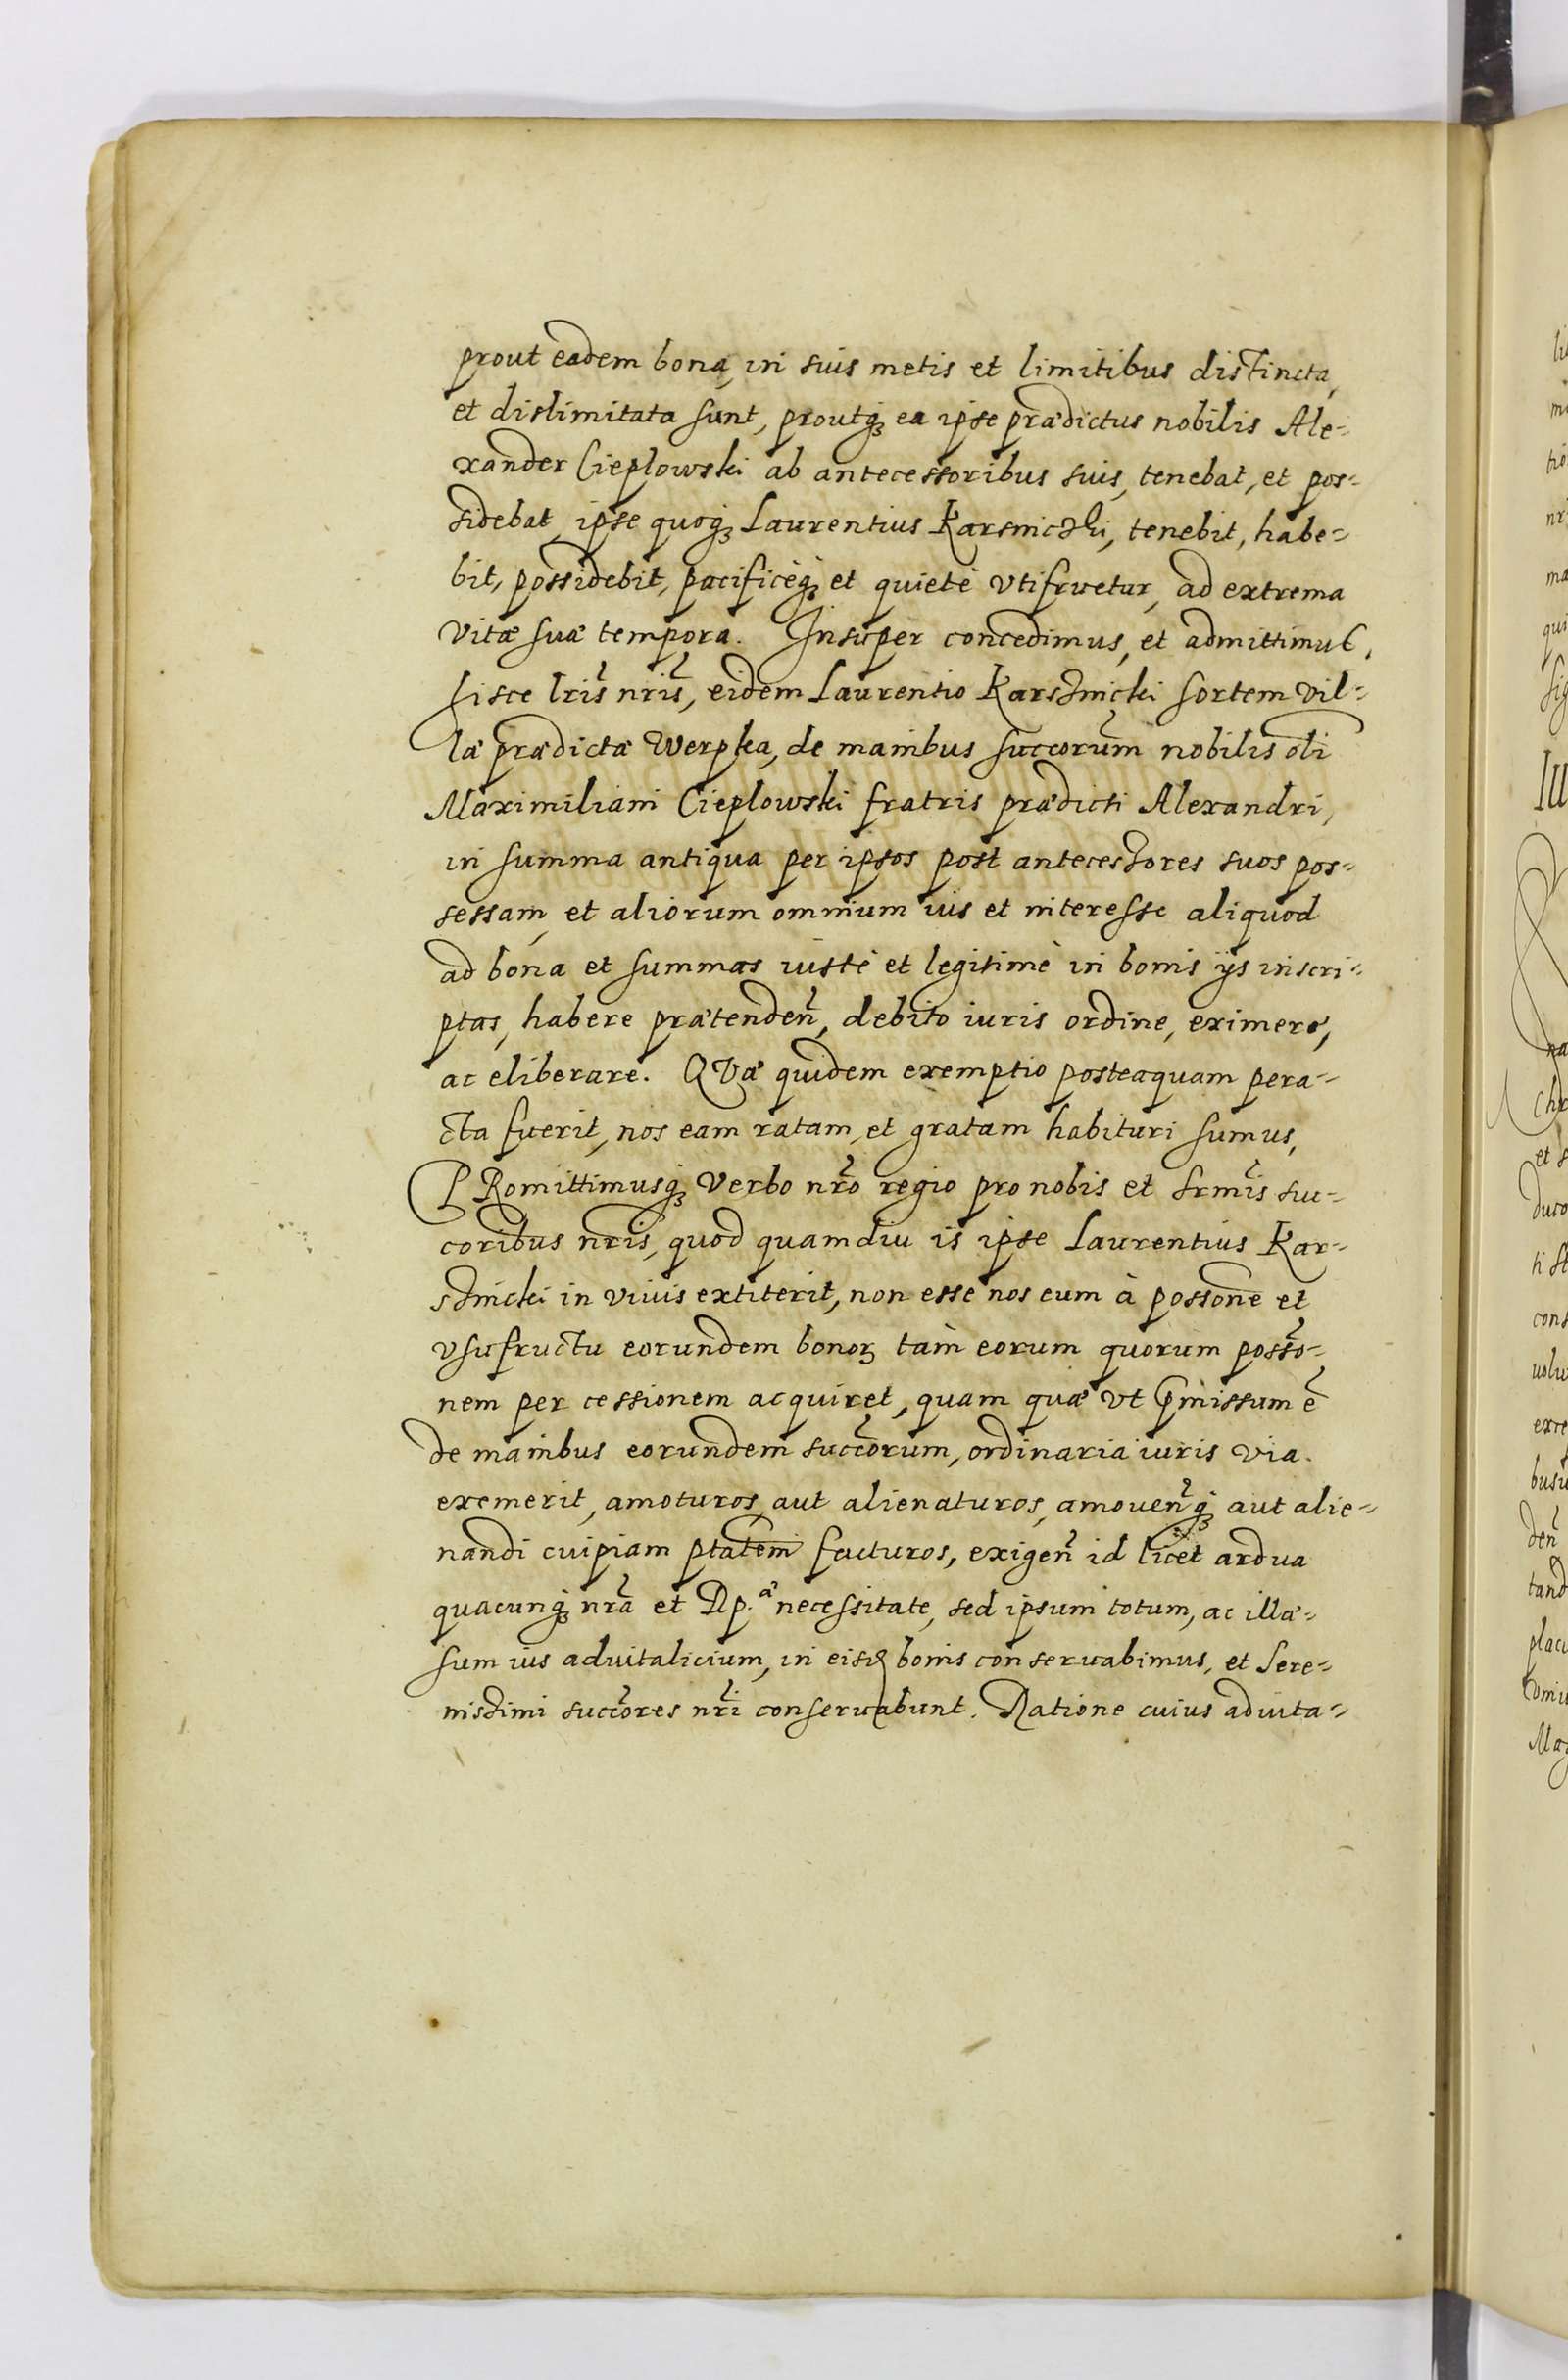 prout eadem bona, in suis metis et limitibus distincta,
et dislimitata sunt, proutq₃ ea ipse prædictus nobilis Ale⸗
xander Cieplowski ab antecessoribus suis, tenebat, et pos⸗
sidebat, ipse quoq₃ Laurentius Karsniczki, tenebit, habe⸗
bit, possidebit, pacificèq₃ et quietè vtifruetur, ad extrema
vitæ suæ tempora. Insuper concedimus, et admittimus,
hisce lris̃ nris̃, eidem Laurentio Karsznicki sortem vil⸗
læ prædictæ Werpka, de manibus succorum̃ nobilis oli
Maximiliani Cieplowski fratris prædicti Alexandri,
in summa antiqua per ipsos post antecessores suos pos⸗
sessam, et aliorum omnium ius et interesse aliquod
ad bona et summas iustè et legitimè in bonis ijs inscri⸗
ptas, habere prætendeñ, debito iuris ordine, eximere,
ac eliberare. QVæ quidem exemptio posteaquam pera⸗
cta fuerit, nos eam ratam, et gratam habituri sumus,
PRomittimusq₃ Verbo nr̃o regio pro nobis et srmis̃ suc⸗
coribus nr̃is, quod quamdiu is ipse Laurentius Kar⸗
sznicki in viuis extiterit, non esse nos eum à possone̅ et
vsufructu eorundem bonoꝝ tam eorum quorum posso̅⸗
nem per cessionem acquiret, quam quæ vt p̅missum e̅
de manibus eorundem succõrum, ordinaria iuris via.
exemerit, amoturos, aut alienaturos, amoueñq₃ aut alie⸗
nandi cuipiam ptatem̅ facturos, exigeñ id licet ardua
quacunq₃ nr̃a et Rp.ᵃ necessitate, sed ipsum totum, ac illæ⸗
sum ius aduitalicium, in eisđ bonis conseruabimus, et Sere⸗
nissimi succõres nr̃i conseruabunt. Ratione cuius aduita⸗